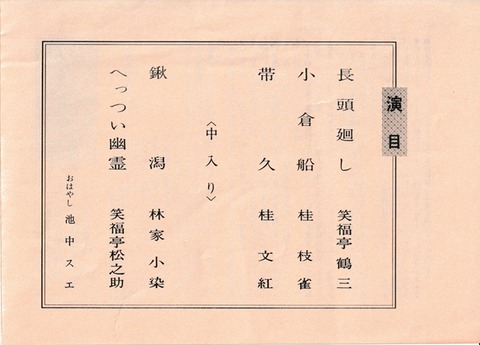 演目
長頭廻し 笑福亭鶴三
小倉船 桂枝雀
帯久 桂文紅
〈中入り〉
鍬潟 林家小染
へっつい幽霊 笑福亭松之助
おはやし 池中スエ